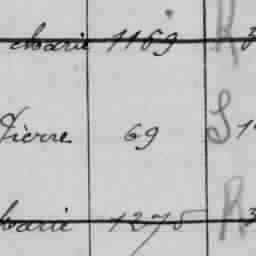 Marie 1169 R 3
Pierre 69 S 1
Marie 1275 R 3